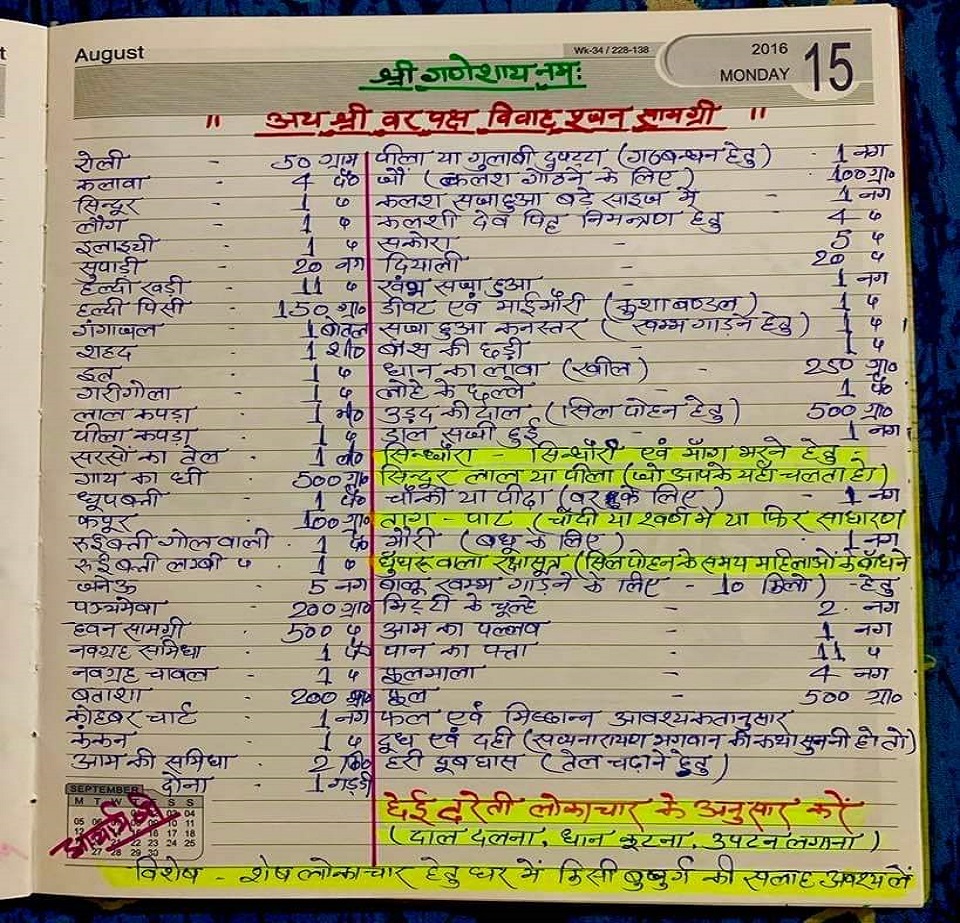 August
Wk-34 / 228-138
2016
MONDAY
15
श्री गणेशाय नमः
" अथ श्री वर पक्ष विवाह पूजन सामग्री "
रोली - 50 ग्राम
कलावा - 4 पै०
सिन्दूर - 1 "
लौंग - 1 "
इलाइची - 1 "
सुपाड़ी - 20 नग
हल्दी खड़ी - 11 "
हल्दी पिसी - 150 ग्रा०
गंगाजल - 1 बोतल
शहद - 1 शी०
इत्र - 1 "
गरीगोला - 1 "
लाल कपड़ा - 1 मी०
पीला कपड़ा - 1 "
सरसों का तेल - 1 ली०
गाय का घी - 500 ग्रा०
धूपबत्ती - 1 पै०
कपूर - 100 ग्रा०
रुईबत्ती गोलवाली - 1 पै०
रुईबत्ती लम्बी " - 1 "
जनेऊ - 5 नग
पञ्चमेवा - 200 ग्रा०
हवन सामग्री - 500 "
नवग्रह समिधा - 1 पै०
नवग्रह चावल - 1 "
बताशा - 200 ग्रा०
कोहबर चार्ट - 1 नग
कंकन - 1 "
आम की समिधा - 2 कि०
दोना - 1 गड्डी
पीला या गुलाबी दुपट्टा (गठबन्धन हेतु) 1 नग
जौं (कलश गोठने के लिए) 100 ग्रा०
कलश सजा हुआ बड़े साइज में - 1 नग
कलशी देव पितृ निमन्त्रण हेतु 4 "
सकोरा - 5 "
दियाली - 20 "
खंभ सजा हुआ - 1 नग
डीवट एवं माईमौरी (कुशा बण्डल) 1 "
सजा हुआ कनस्तर (खम्भ गाड़ने हेतु) 1 "
बांस की छड़ी - 1 "
धान का लावा (खील) - 250 ग्रा०
लोहे के छल्ले - 1 पै०
उड़द की दाल (सिल पोहन हेतु) 500 ग्रा०
डाल सजी हुई - 1 नग
सिन्धौरा - सिन्धौरी एवं माँग भरने हेतु -
सिन्दुर लाल या पीला (जो आपके यहाँ चलता है)
चौकी या पीढ़ा (वर के लिए) - 1 नग
ताग - पाट (चाँदी या स्वर्ण में या फिर साधारण
मौरी (बधू के लिए) - 1 नग
घुंघरू वाला रक्षासूत्र (सिल पोहन के समय महिलाओं के बाँधने
बालू खम्भ गाड़ने के लिए - 10 किलो) - हेतु
मिट्टी के चूल्हे - 2 नग
आम का पल्लव - 1 नग
पान का पत्ता - 11 "
फूलमाला - 4 नग
फूल - 500 ग्रा०
फल एवं मिष्ठान्न आवश्यकतानुसार
दूध एवं दही (सत्यनारायण भगवान की कथा सुननी हो तो)
हरी दूब घास (तेल चढ़ाने हेतु)
हेई दरेती लोकाचार के अनुसार करें
(दाल दलना, धान कूटना, उपटन लगाना)
विशेष - शेष लोकाचार हेतु घर में किसी बुजुर्ग की सलाह अवश्य लें
SEPTEMBER